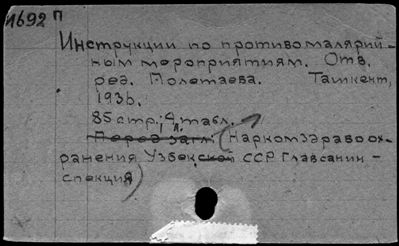 1692 П
Инструкции по противомалярий-
ным мероприятиям. Отв.
ред. Полетаева. Ташкент,
1936.
85 стр.; 4 л. табл.
Перед загл. (Наркомздравоох-
ранения Узбекской ССР Главсанин-
спекция)